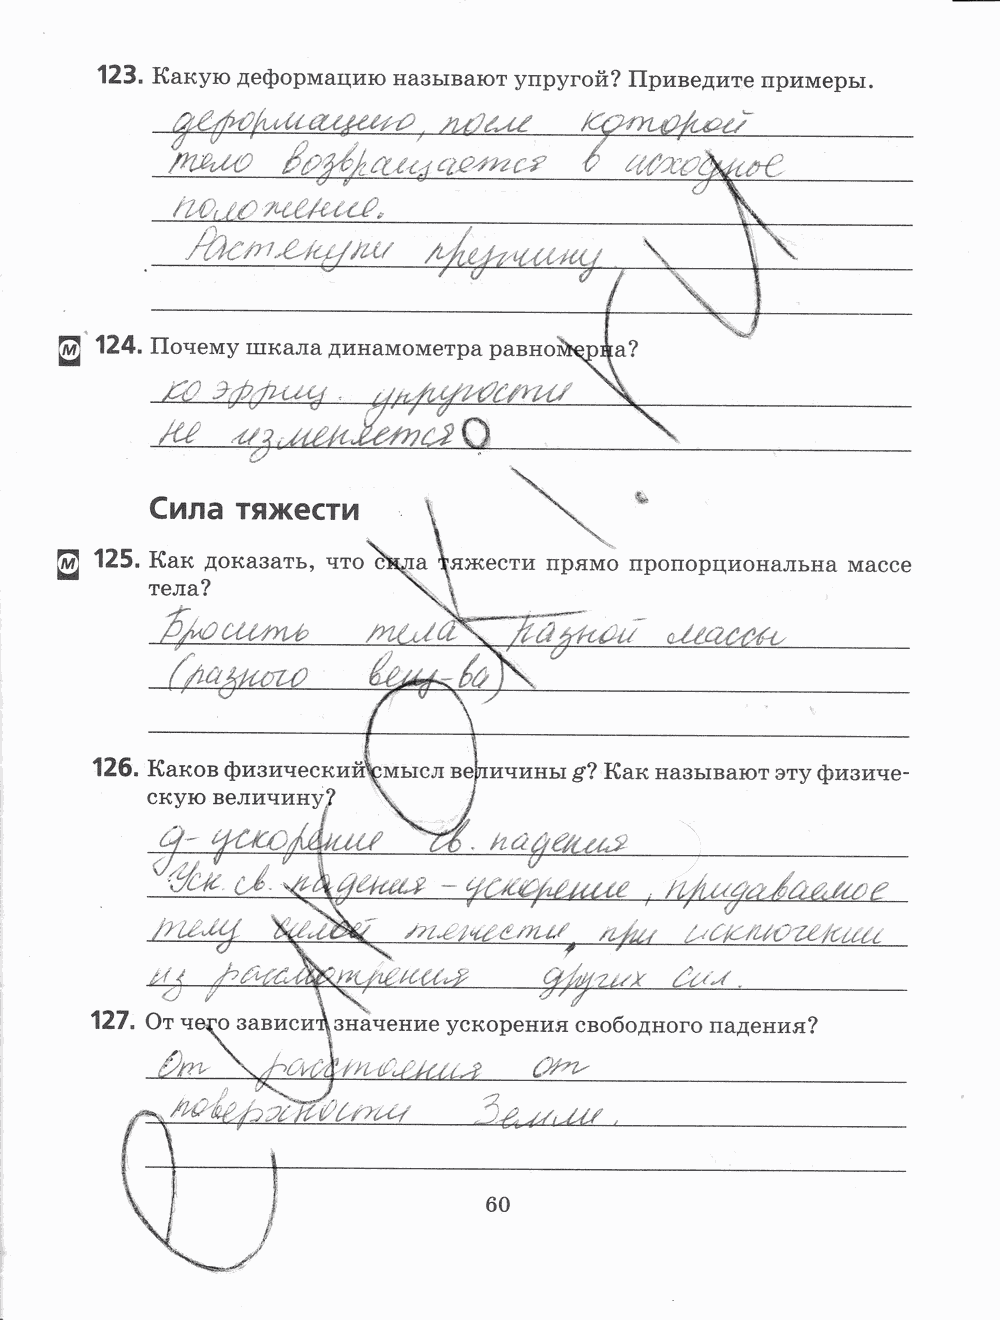 123. Какую деформацию называют упругой? Приведите примеры.
деформацию, после которой
тело возвращается в исходное
положение.
Растянули пружину
М 124. Почему шкала динамометра равномерна?
коэффиц. упругости
не изменяется
Сила тяжести
М 125. Как доказать, что сила тяжести прямо пропорциональна массе
тела?
Бросить тела разной массы
(разного вещ-ва)
126. Каков физический смысл величины g? Как называют эту физиче-
скую величину?
g - ускорение св. падения
Уск. св. падения - ускорение, придаваемое
телу силой тяжести, при исключении
из рассмотрения других сил.
127. От чего зависит значение ускорения свободного падения?
От расстояния от
поверхности Земли.
60